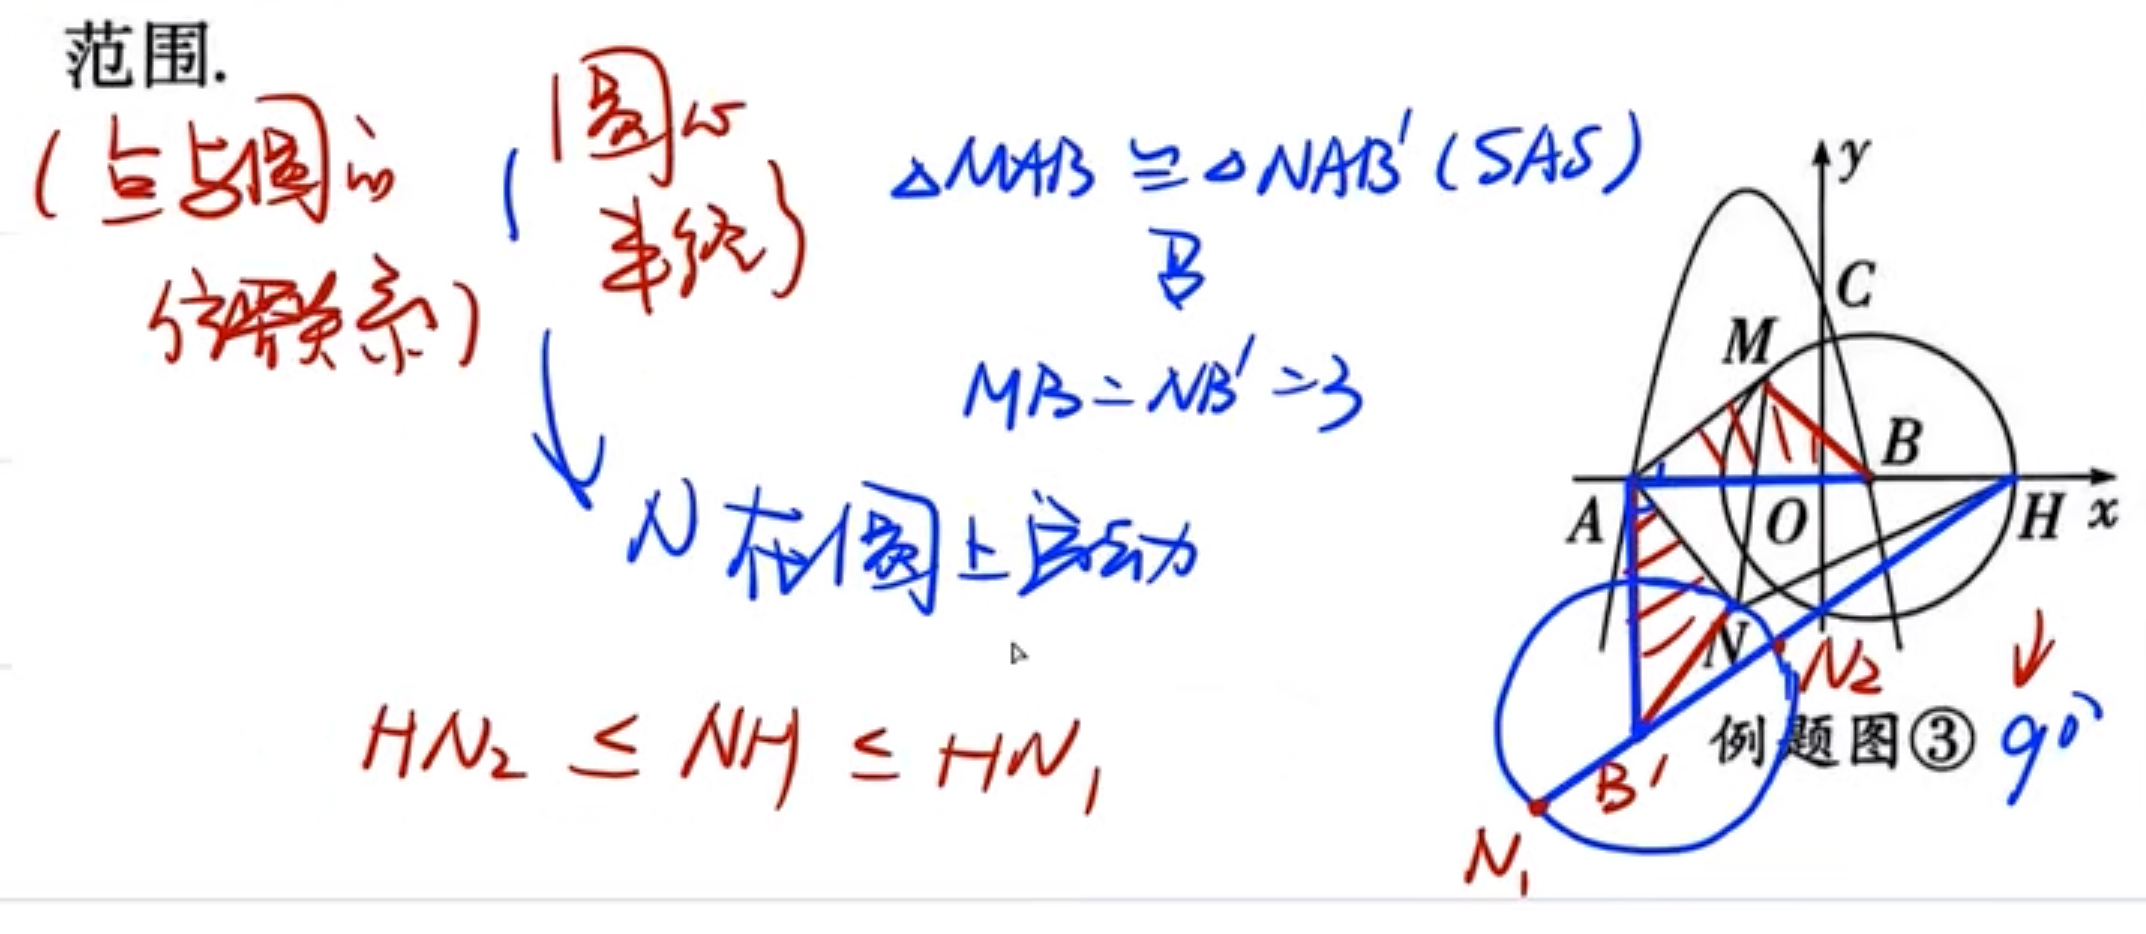 范围.
(点与圆的
位置关系)
(圆心
半径)
△MAB ≌ △NAB' (SAS)
B
MB = NB' = 3
N在圆上运动
HN₂ ≤ NH ≤ HN₁
y
C
M
B
A
O
H
x
N
N₂
例题图③
90°
B'
N₁